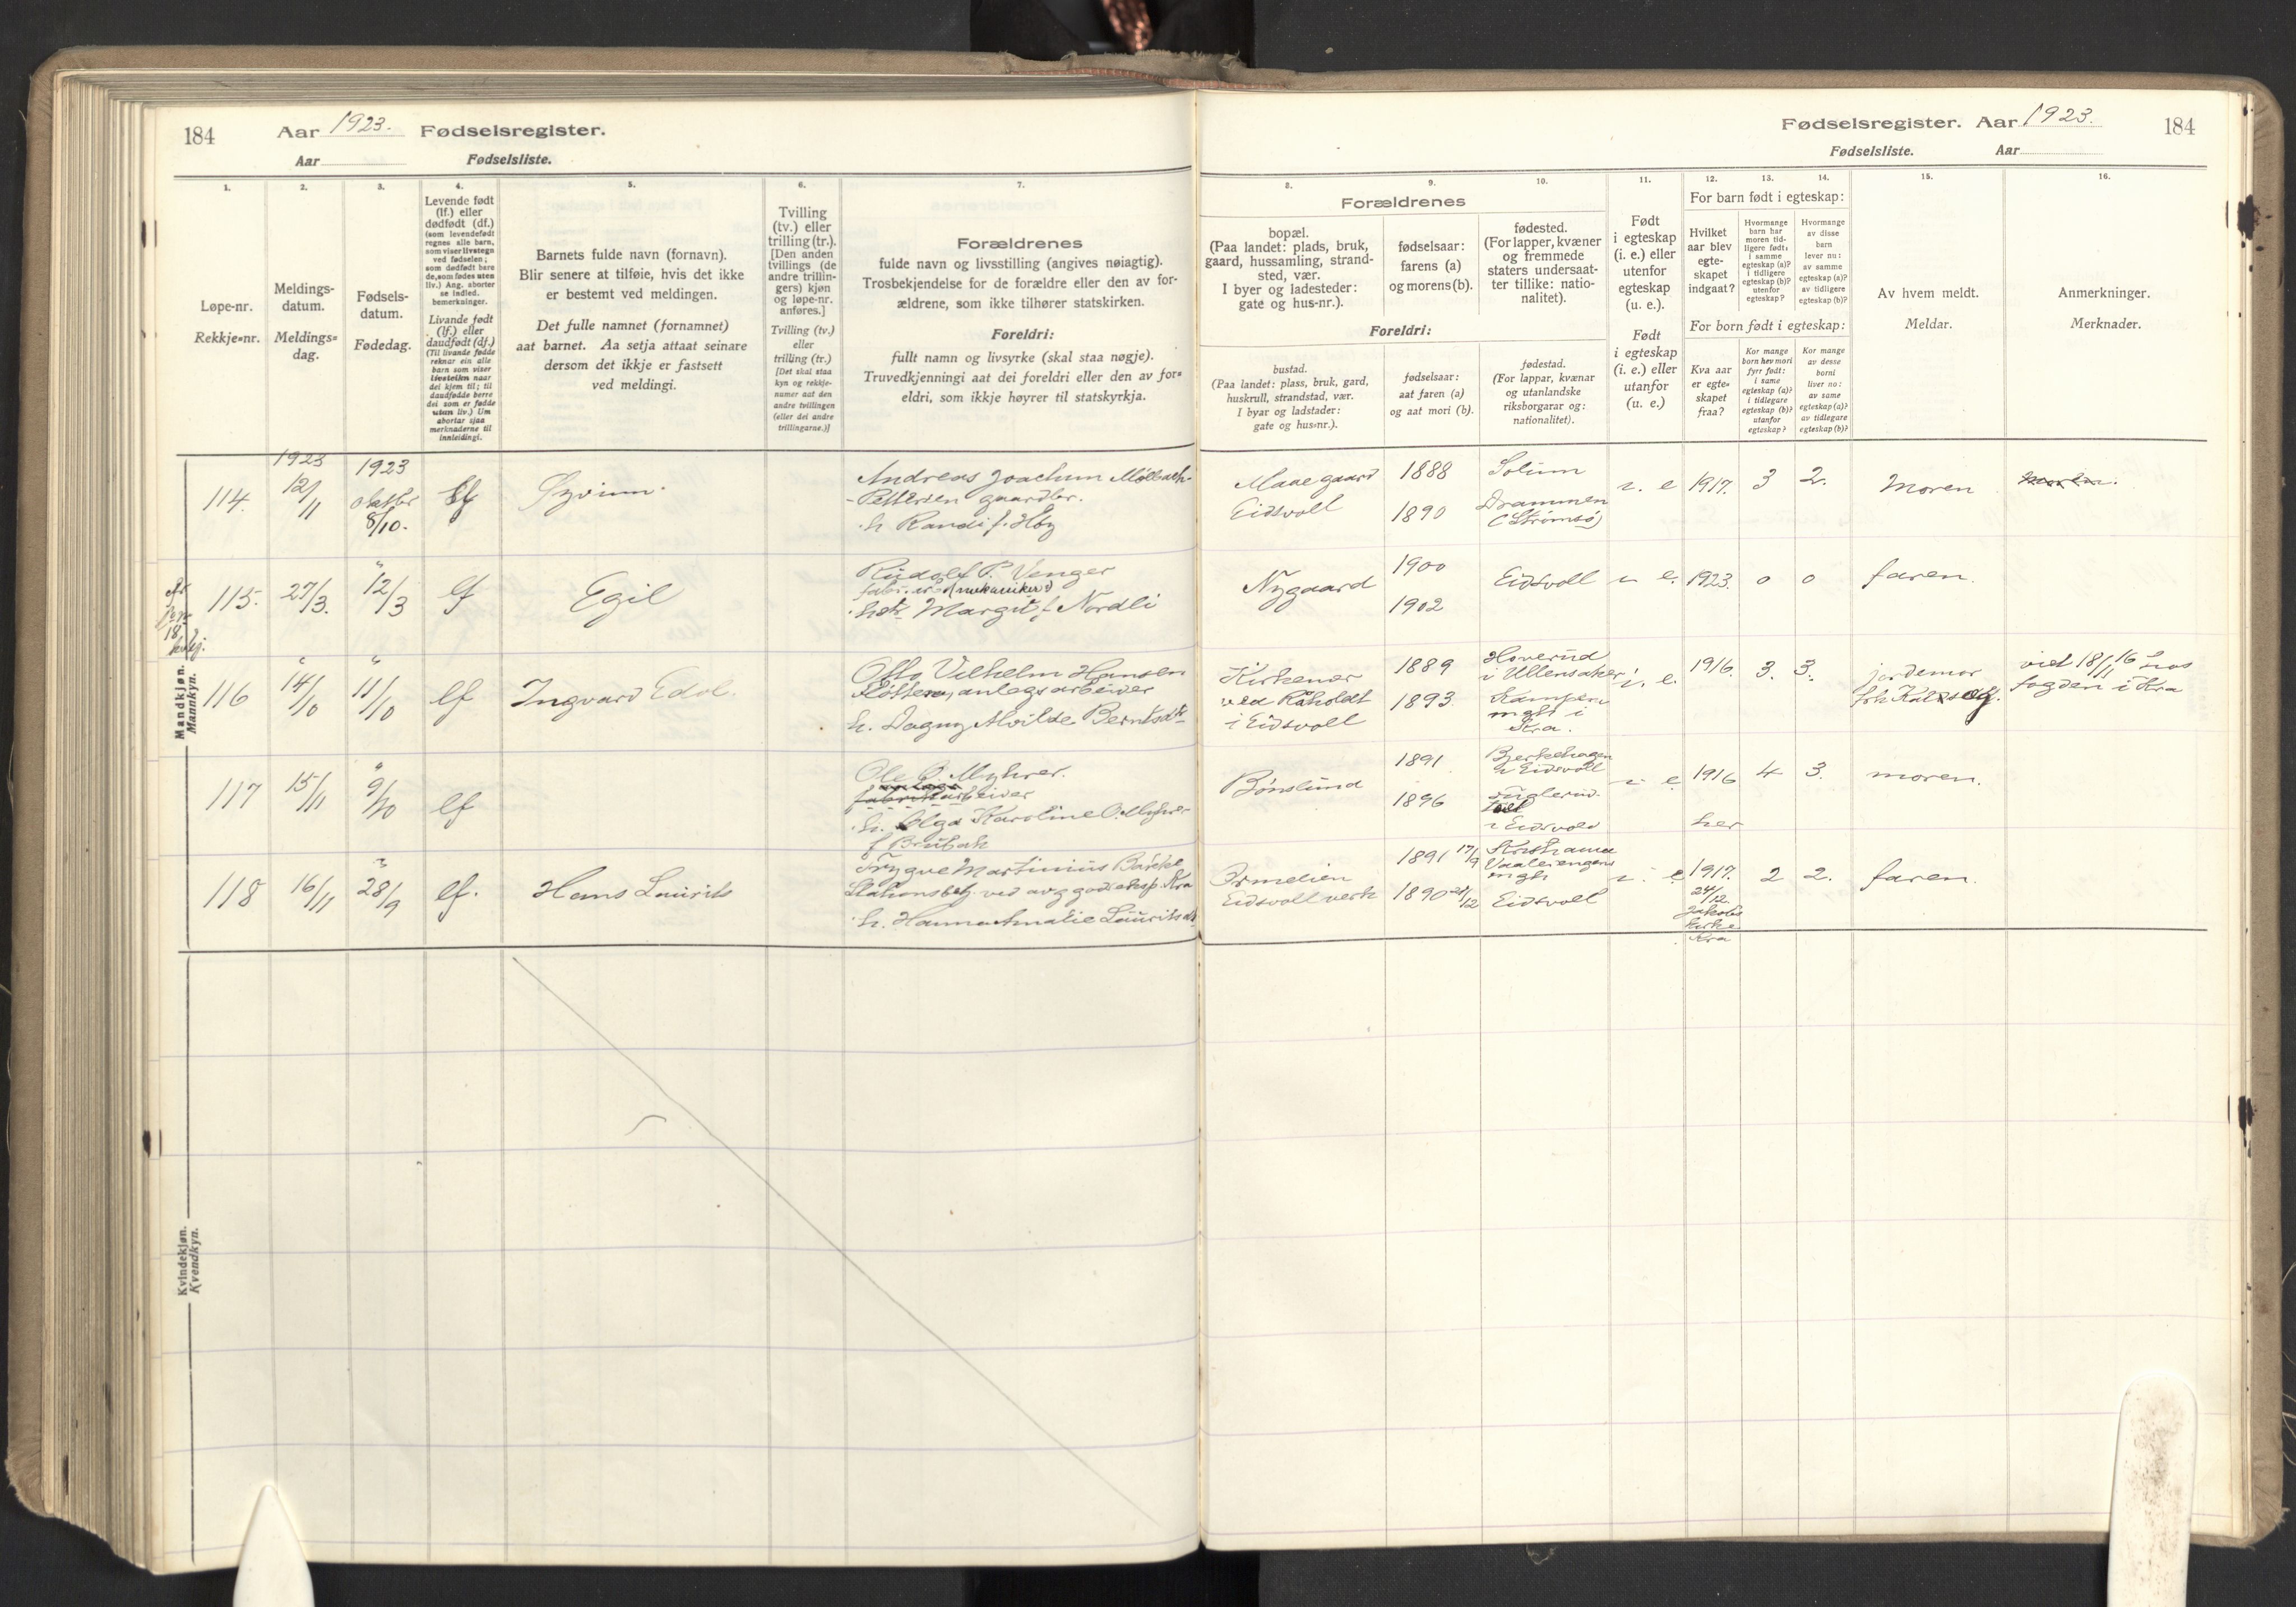 184
Aar 1923. Fødselsregister.
Aar
Fødselsliste.
1.
Løpe-nr.
Rekkje=nr.
2.
Meldings-
datum.
Meldings=
dag.
3.
Fødsels-
datum.
Fødedag.
4.
Levende født
(lf.) eller
dødfødt (df.)
(som levendefødt
regnes alle barn,
som viser livstegn
ved fødselen;
som dødfødt bere
de, som fødes uten
liv.) Ang. aborter
se indled.
bemerkninger.
Livande født
(lf.) eller
daudfødt (df.)
(Til livande fødde
reknar ein alle
barn som viser
livsteikn naar
dei kjem til; til
daudfødde berre
dei som er fødde
utan liv.) Um
abortar sjaa
merknaderne til
innleidingi.
5.
Barnets fulde navn (fornavn).
Blir senere at tilføie, hvis det ikke
er bestemt ved meldingen.
Det fulle namnet (fornamnet)
aat barnet. Aa setja attaat seinare
dersom det ikkje er fastsett
ved meldingi.
6.
Tvilling
(tv.) eller
trilling (tr.).
[Den anden
tvillings (de
andre trillin-
gers) kjøn
og løpe-nr.
anføres.]
Tvilling (tv.)
eller
trilling (tr.)
[Det skal staa
kyn og rekkje-
numer aat den
andre tvillingen
(eller dei andre
trillingarne.)]
7.
Forældrenes
fulde navn og livsstilling (angives nøiagtig).
Trosbekjendelse for de forældre eller den av for-
ældrene, som ikke tilhører statskirken.
Foreldri:
fullt namn og livsyrke (skal staa nøgje).
Truvedkjenningi aat dei foreldri eller den av for=
eldri, som ikkje høyrer til statskyrkja.
Mandkjøn.
Mannkyn.
114.
1923
12/11
1923
oktober
8/10.
lf
Andreas Joachum
Pettersen gaardbr.
h. Randi f. Hoy
115.
27/3.
"
12/3
lf
Egil
Rudolf P. Venger
(mekaniker)
Margit f. Nordli
116
"
14/10
"
11/10
lf
Ingvard Edol.
Otto Vilhelm Hansen
anlegsarbeider
h. Dagny Alvilde Berntsdtr
117
15/11
"
9/10
lf
Ole O. Myhrer.
fabrikarbeider
h. Olga Karoline O. Myhrer
f Brubak
118
16/11
"
28/9
lf.
Hans Laurits
Trygve Martinius
Stationsbetj. ved godseksp. Kra
h. Hanna Amalie Lauritsdt
Kvindekjøn.
Kvendkyn.
Fødselsregister. Aar 1923.
184
Fødselsliste.
Aar
Forældrenes
8.
bopæl.
(Paa landet: plads, bruk,
gaard, hussamling, strand-
sted, vær.
I byer og ladesteder:
gate og hus-nr.).
Foreldri:
bustad.
(Paa landet: plass, bruk, gard,
huskrull, strandstad, vær.
I byar og ladstader:
gate og hus=nr.).
9.
fødselsaar:
farens (a)
og morens (b).
fødselsaar:
aat faren (a)
og aat mori (b).
10.
fødested.
(For lapper, kvæner
og fremmede
staters undersaat-
ter tillike: natio-
nalitet).
fødestad.
(For lappar, kvænar
og utanlandske
riksborgarar og:
nationalitet).
11.
Født
i egteskap
(i. e.) eller
utenfor
egteskap
(u. e.).
Født
i egteskap
(i. e.) eller
utanfor
(u. e.)
For barn født i egteskap:
12.
Hvilket
aar blev
egte-
skapet
indgaat?
13.
Hvormange
barn har
moren tid-
ligere født:
i samme
egteskap (a)?
i tidligere
egteskap (b)?
utenfor
egteskap?
14.
Hvormange
av disse
barn
lever nu:
av samme
egteskap (a)?
av tidligere
egteskap (b)?
For born født i egteskap:
Kva aar
er egte=
skapet
fraa?
Kor mange
born hev mori
fyrr født:
i same
egteskap (a)?
i tidlegare
egteskap (b)?
utanfor
egteskap?
Kor mange
av desse
borni
liver no:
av same
egteskap (a)?
av tidlegare
egteskap (b)?
15.
Av hvem meldt.
Meldar.
16.
Anmerkninger.
Merknader.
Eidsvoll
1888
1890
Solum
Drammen
(Strømsø)
i. e
1917.
3
2.
Moren
Nygaard
1900
1902
Eidsvoll
i. e.
1923.
0
0
faren.
Kirkenær
ved Råholdt
i Eidsvoll
1889
1893.
Hoverud
i Ullensaker
Kampen
mght i
Kra.
i. e.
1916.
3.
3.
jordemor
vied 18/1 16 hos
fogden i Kra
Bønslund
1891
1896
i Eidsvoll
i Eidsvold
i. e
1916
her
4
3.
moren.
Ormelien
Eidsvollverk
1891 17/9
1890 21/12
Kristiania
Vaalerengens
mght
Eidsvoll
i. e.
1917.
24/12.
Jakobs
kirke
Kra
2
2.
faren.